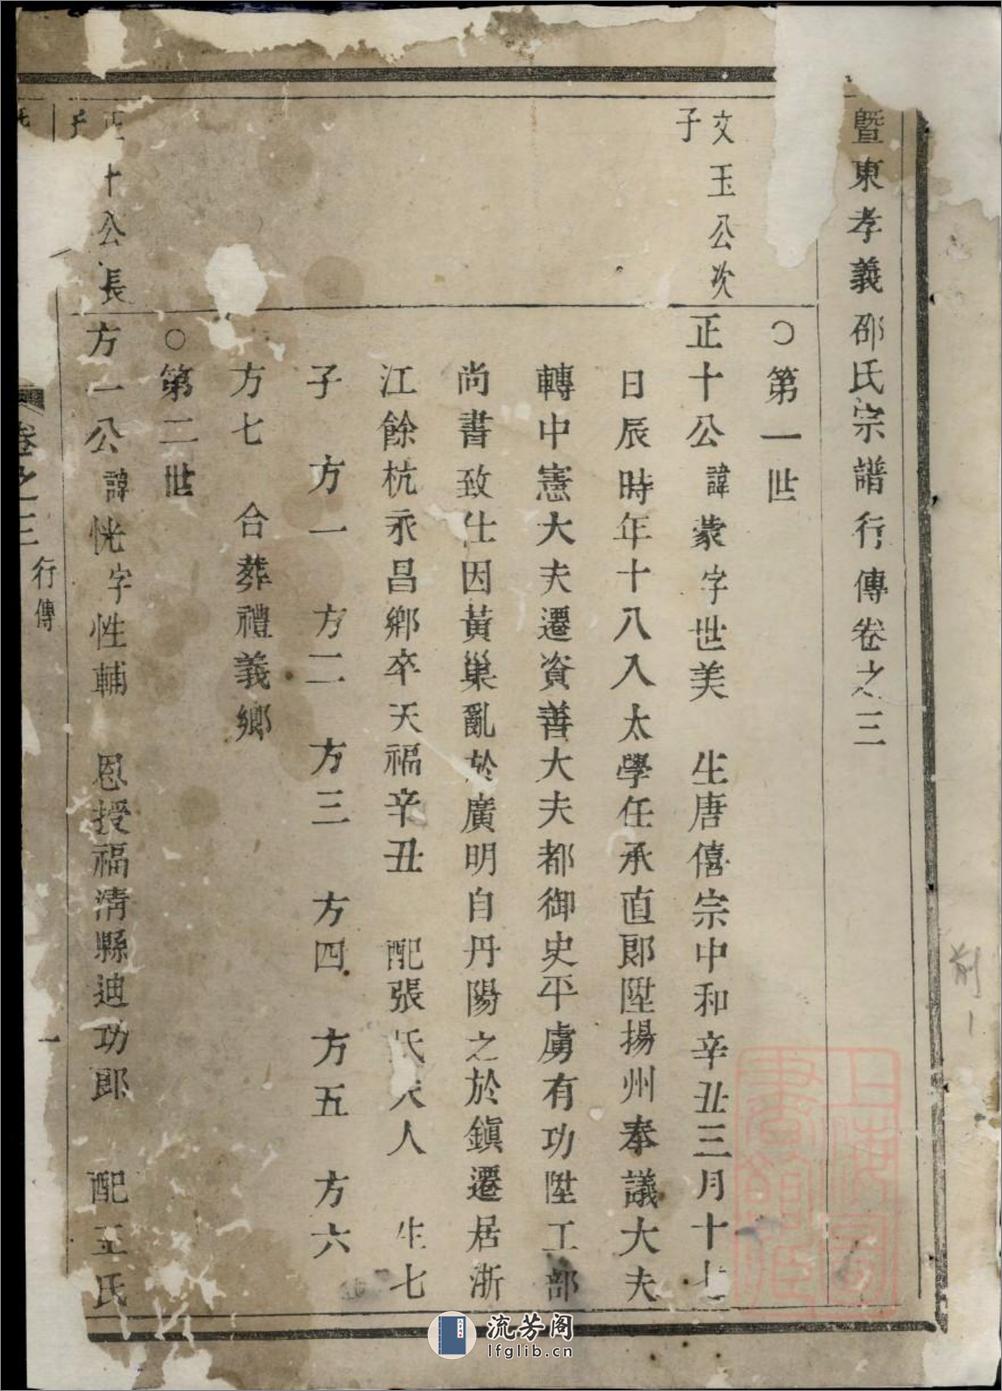 暨東孝義邵氏宗譜行傳卷之三
○第一世
文玉公次
子
正十公諱蒙字世美 生唐僖宗中和辛丑三月十七
日辰時年十八入太學任承直郎陞揚州奉議大夫
轉中憲大夫遷資善大夫都御史平虜有功陞工部
尚書致仕因黃巢亂於廣明自丹陽之於鎮遷居浙
江餘杭永昌鄉卒天福辛丑 配張氏夫人 生七
子 方一 方二 方三 方四 方五 方六
方七 合葬禮義鄉
○第二世
正十公長
子
方一公諱恍字性輔 恩授福清縣迪功郎 配王氏
卷之三 行傳 一
前1
流芳阁
lfglib.cn